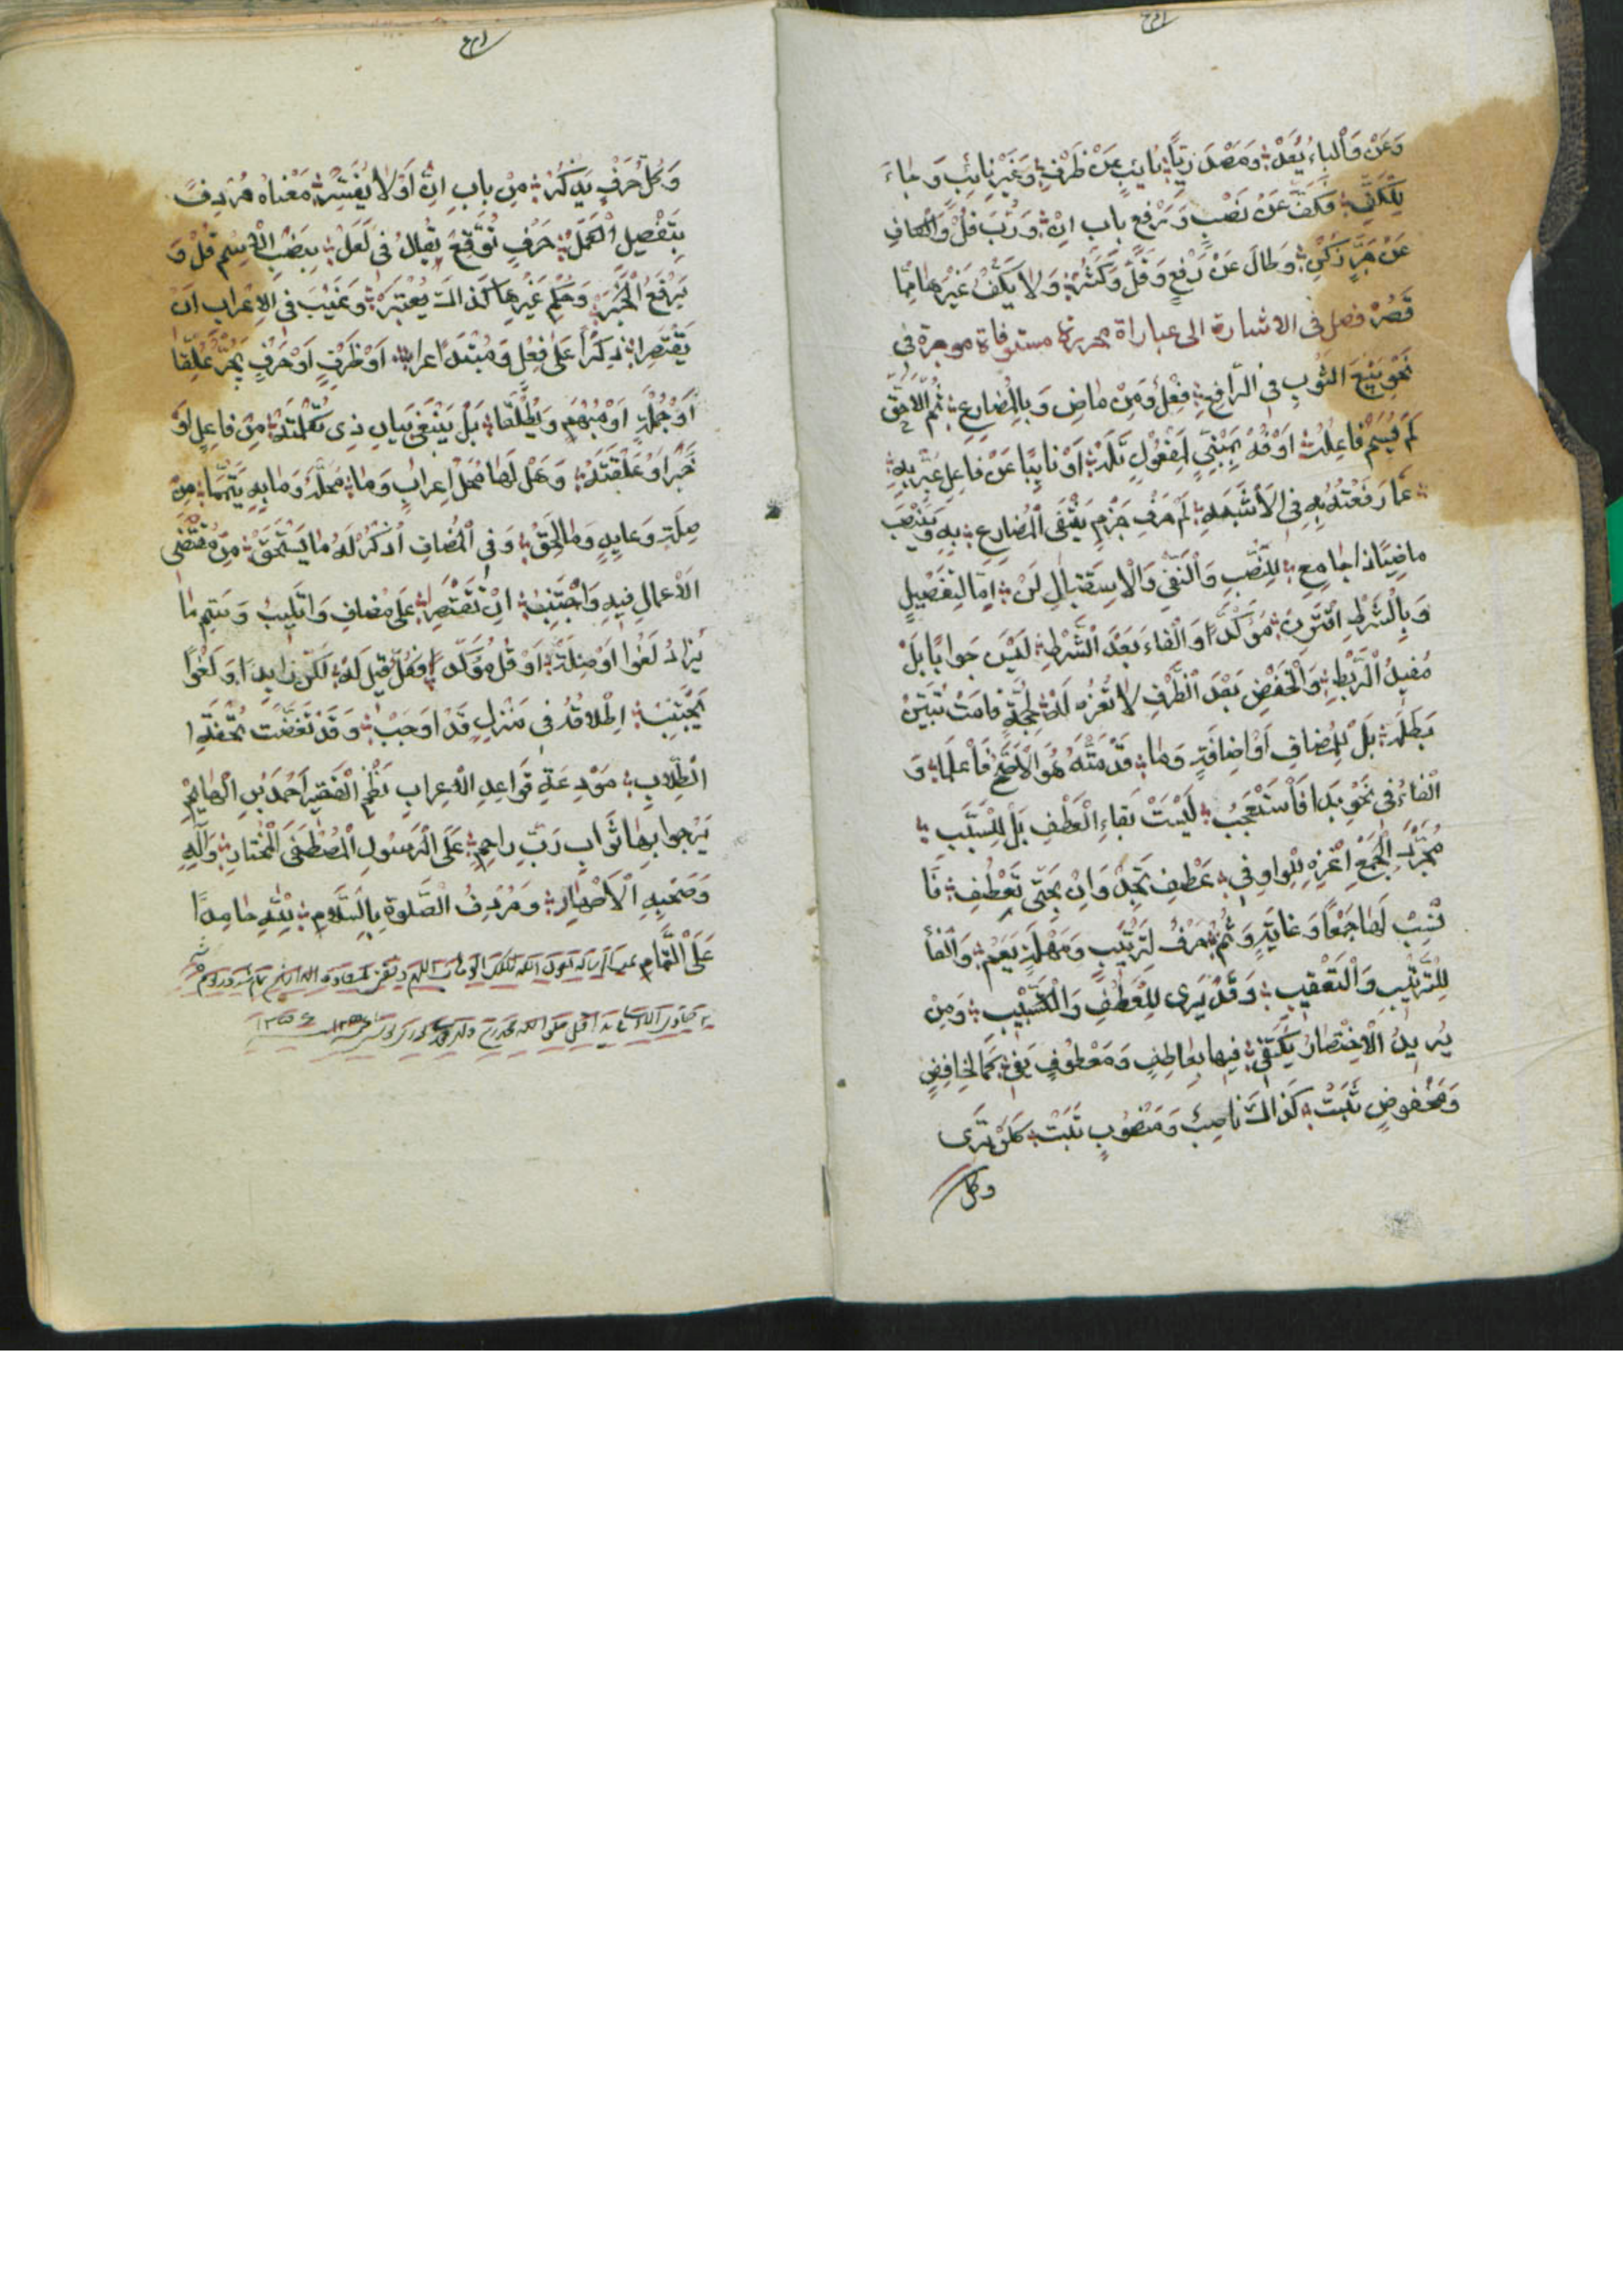 وَعَنْ وَالْبَاءِ يُعَدّ وَمَصْدَرِيًّا نَايِبٍ عَنْ ظَرْفٍ وَغَيْرِ نَائِبٍ وَجَاءَ
لِلْكَفِّ فَكَفَّ عَنْ نَصْبٍ وَرَفْعٍ بَابِ اِنْ وَرُبَ قُلْ وَالْكَافِ
عَنْ جَرٍّ زُكِنْ وَطَالَ عَنْ رَفْعٍ وَقَلَّ وَكَثُرْ وَلَا يَكُفّ غَيْرَهَا مِمَّا
قُصِرْ فصل فى الاشارة الى عباراة محررة مستوفاة موجزة فى
نَحْوِ بِيعَ الثَّوْبِ فى الرَّافِعِ فِعْلٌ وَمِنْ مَاضٍ وَبِالْمُضَارِعِ ثُمَّ الْاحَقّ
لَمْ يُسَمَّ فَاعِلُهْ اَوْ قُلْ بِمَبْنِيٍّ لِمَفْعُولٍ تَلَهْ اَوْ نَايِبًا عَنْ فَاعِلٍ عَبِّرْ بِهِ
عَمَّا رَفَعْتَهُ بِهِ فى الْاَشْبَهِ لَمْ حَرْفُ جَزْمٍ يَنْفِى الْمُضَارِعْ بِهِ وَيَنْقَلِبُ
مَاضِيًا ذَا جَامِعِ لِلنَّصْبِ وَالنَّفْىِ وَالْاِسْتِقْبَالِ لَنْ اِمَّا لِتَفْصِيلٍ
وَبِالشَّرْطِ اقْتَرِنْ مُؤَكِّدًا وَالْفَاءَ بَعْدَ الشَّرْطِ لَيْسَ جَوَابًا بَلْ
مُفِيدُ الرَّبْطِ وَالْخَفْضِ بَعْدَ الظَّرْفِ لَا تُعْزِهِ لَهْ لِحُجَّةٍ قَامَتْ تُبَيِّنْ
بَطَلَهْ بَلْ لِلْمُضَافِ اَوْ اِضَافَةٍ وَمَا قَدَّمْتُهُ هُوَ الْاَصَحُّ فَاعْلَمَا وَ
الْفَاءُ فى نَحْوِ بَدَا فَاسْتُعْجِبُ لَيْسَتْ بِفَاءِ الْعَطْفِ بَلْ لِلسَّبَبِ
مُجَرَّدَ الْجَمْعِ اعْزِهِ لِلْوَاوِ فى عَطْفٍ تَجِدْ وَاِنْ بِحَتَّى تَعْطِفْ فَا
نْسِبْ لَهَا جَمْعًا وَغَايَةٍ وَثُمَّ حَرْفُ لِتَرْتِيبٍ وَمُهْلَةٍ يَعُمْ وَالْفَأْ
لِلتَّرْتِيبِ وَالتَّعْقِيبِ وَقَدْ يَرِى لِلْعَطْفِ وَالتَّسْبِيبِ وَمِنْ
يُرِيدُ الْاِخْتِصَارُ يَكْتَفِى فِيهَا بِعَاطِفٍ وَمَعْطُوفٍ يَفِى كَالْخَافِضِ
وَمَخْفُوضٍ ثَبَتْ كَذَاكَ نَاصِبٌ وَمَنْصُوبٍ ثَبَتْ كَلَنْ تَرَى
وكل
وَكُلُّ حَرْفٍ يُذْكَرُ مِنْ بَابِ اِنَّ اَوَّلًا يُفَسَّرْ مَعْنَاهُ مُرْدِفً
بِتَفْصِيلِ الْعَمَلْ حَرْفُ تَوَقُّعٍ يُقَالُ فى لَعَلْ يَنْصِبُ الْاِسْمَ قُلْ وَ
يَرْفَعُ الْخَبَرْ وَحُكْمُ غَيْرِهَا كَذَاكَ يُعْتَبَرْ وَعَيْبَ فى الْاِعْرَابِ اَنْ
يَقْتَصِرَا ذِكْرًا عَلٰى فِعْلٍ وَمُبْتَدَا عرا اَوْ ظَرْفٍ اَوْ حَرْفٍ بِجَرٍّ عُلِّقَا
اَوْ جُمْلَةٍ اَوْ مُبْهَمٍ وَيُطْلَقَا بَلْ يَنْبَغِى بَيَانِ ذِى تَكْمِلَتَهْ مِنْ فَاعِلٍ اَوْ
خَبَرٍ اَوْ عَلَقَتَهْ وَهَلْ لَهَا مَحَلُّ اِعْرَابٍ وَمَا مَحَلُّهُ وَمَا بِهِ يَتِمَّمَا مِنْ
صِلَةٍ وَعَايِدٍ وَمَا لَحِقْ وَفى الْمُضَافِ اُذْكُرْ لَهُ مَا يَسْتَحِقّ مِنْ مُقْتَضِى
الْاَعْمَالِ فِيهِ وَاجْتَنِبْ اَنْ تَقْتَصِرْ عَلٰى مُضَافٍ
يُزَادُ لَغْوًا اَوْ صِلَةْ اَوْ قُلْ مُؤَكِّدًا فَكُلٌّ قِيلَ لَهْ لَكِنْ زَايِدًا وَلَغْوًا
يُجْتَنَبْ اِطْلَاقُهُ فى مُنْزَلٍ قَدْ اَوْجَبْ وَقَدْ تَقَضَّتْ تُحْفَةُ ا
لطُّلَّابِ مُوْدِعَةٍ قَوَاعِدِ الْاِعْرَابِ نَظْمُ الْفَقِيرِ اَحْمَدَ بْنِ الْهَايِمِ
يَرْجُوا بِهَا ثَوَابِ رَبٍّ رَاحِمٍ عَلَى الرَّسُولِ الْمُصْطَفَى الْمُخْتَارِ وَآلِهِ
وَصَحْبِهِ الْاَطْهَارِ وَمُرْدِفُ الصَّلٰوةِ بِالسَّلَامِ لِلّٰهِ حَامِدًا
عَلَى التَّمَامِ